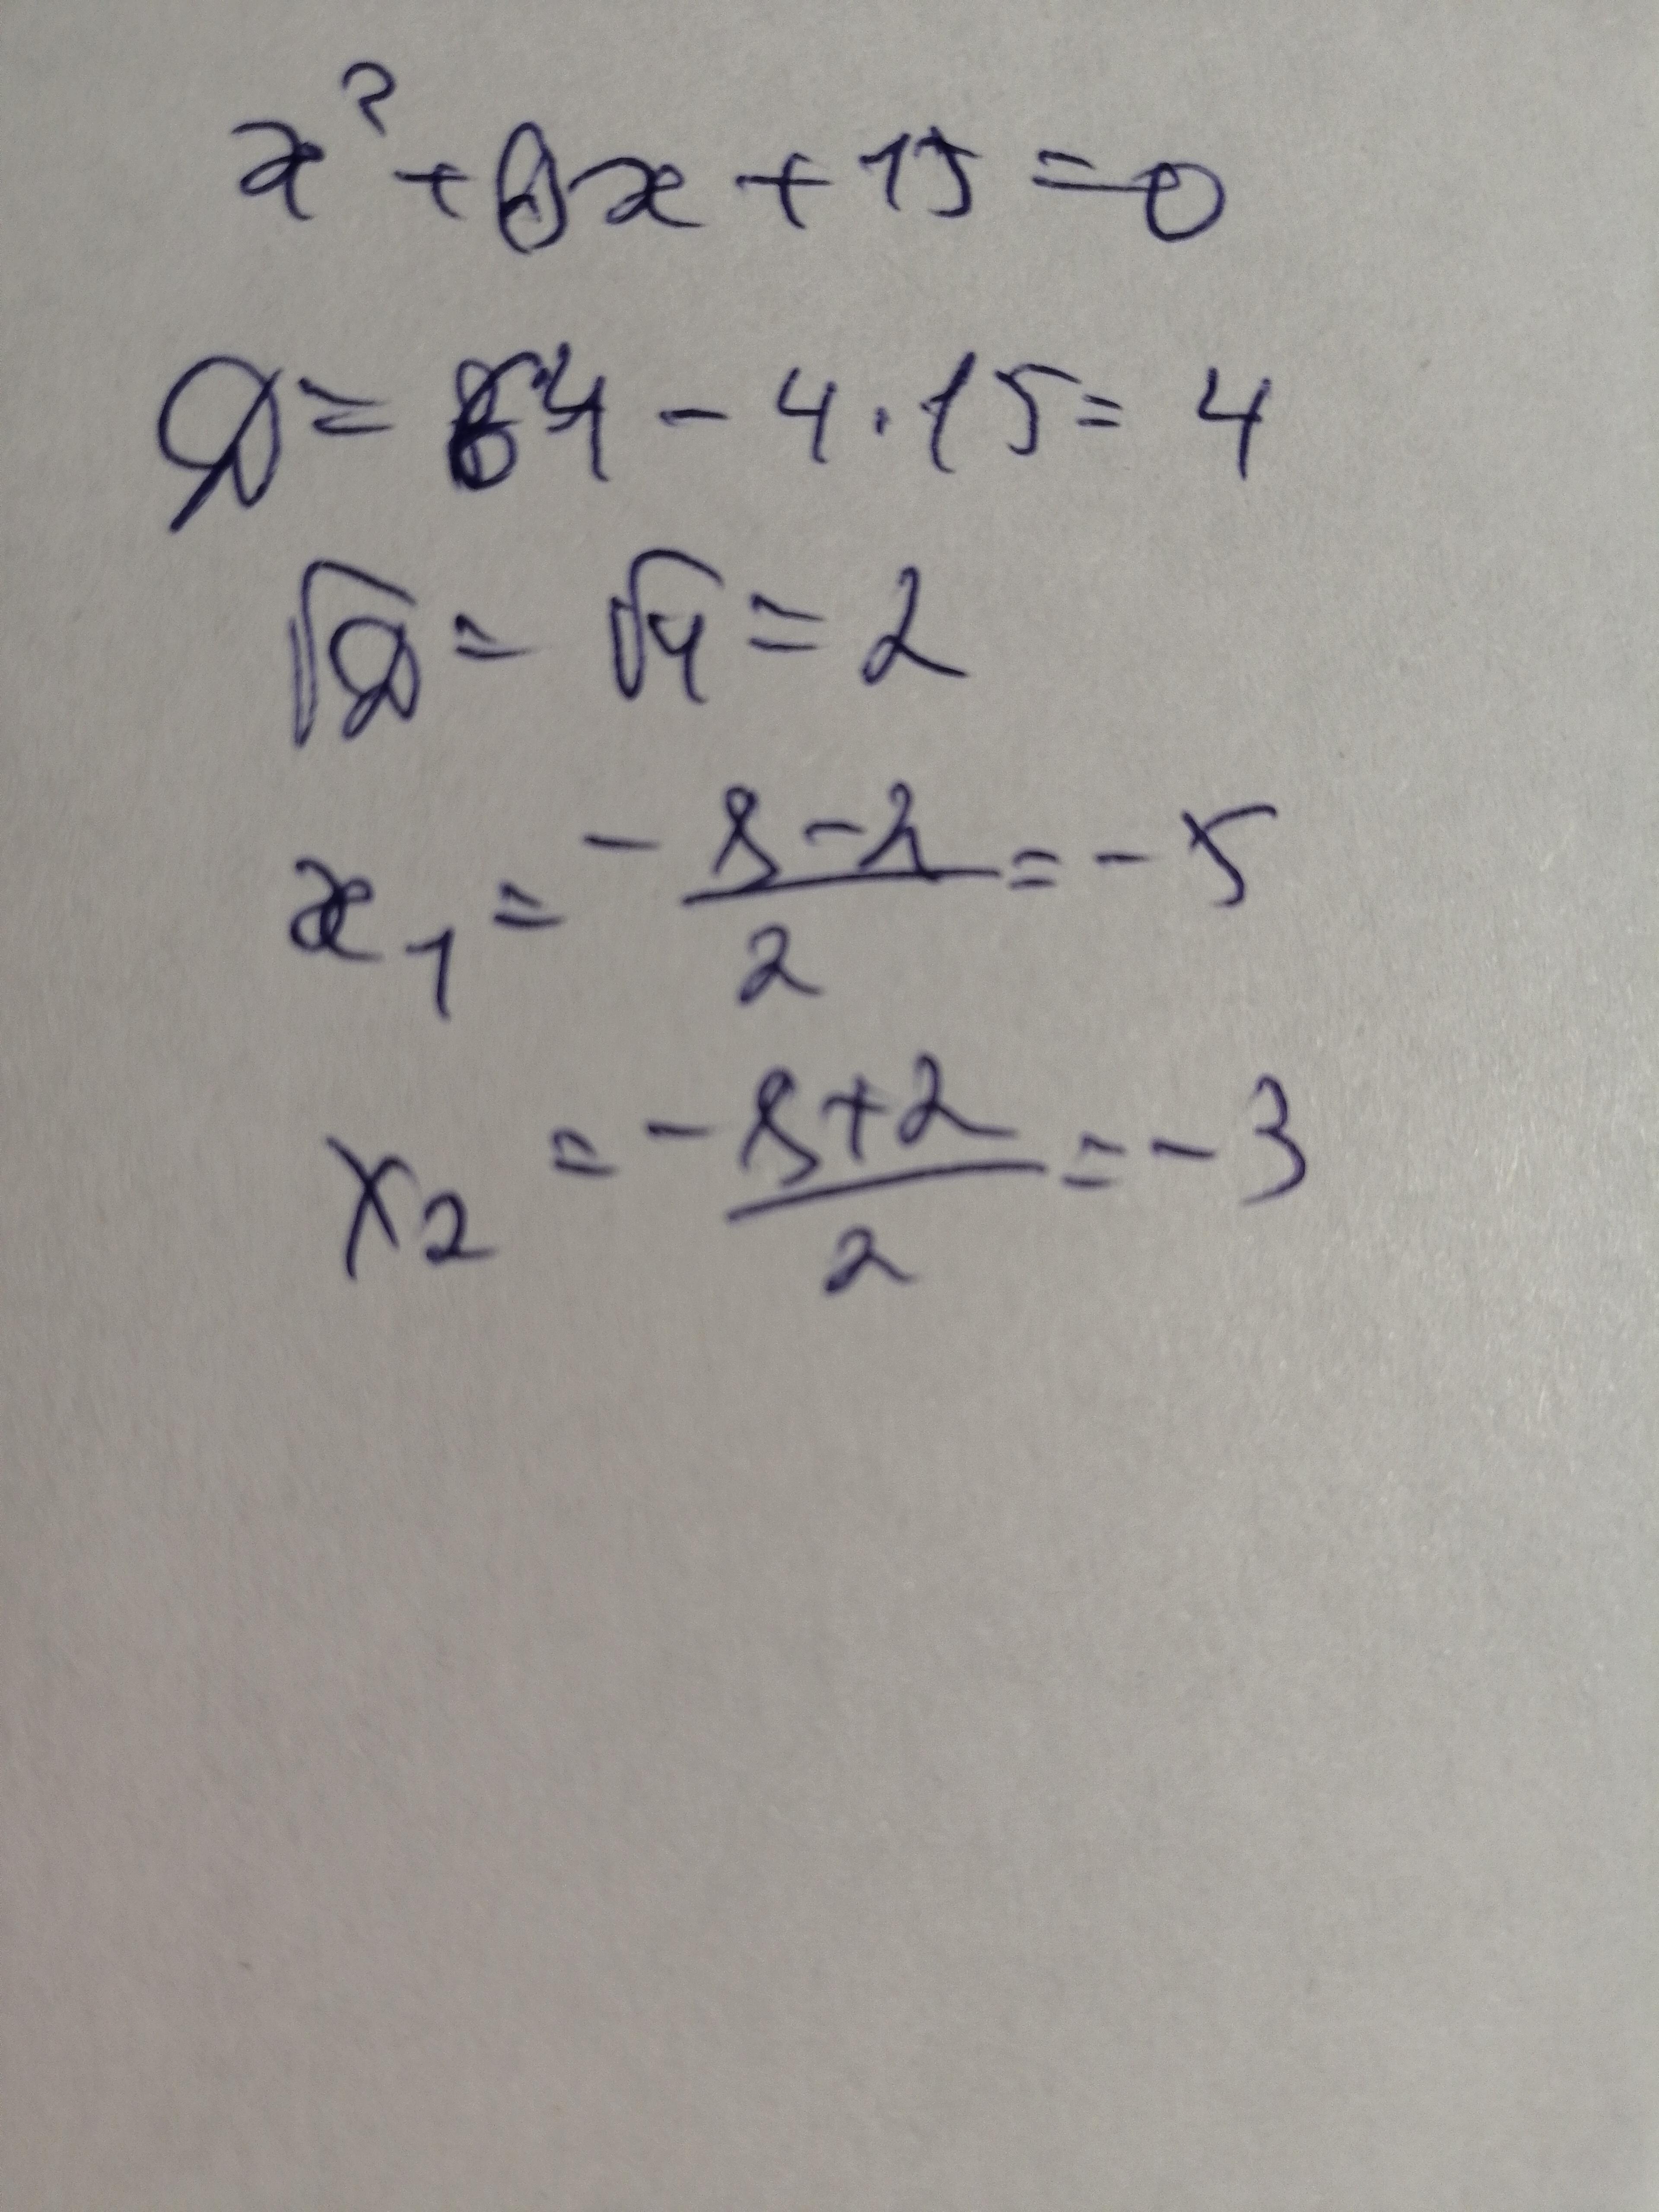 x² + 8x + 15 = 0
D = 64 - 4·15 = 4
√D = √4 = 2
x₁ = (-8-2)/2 = -5
x₂ = (-8+2)/2 = -3